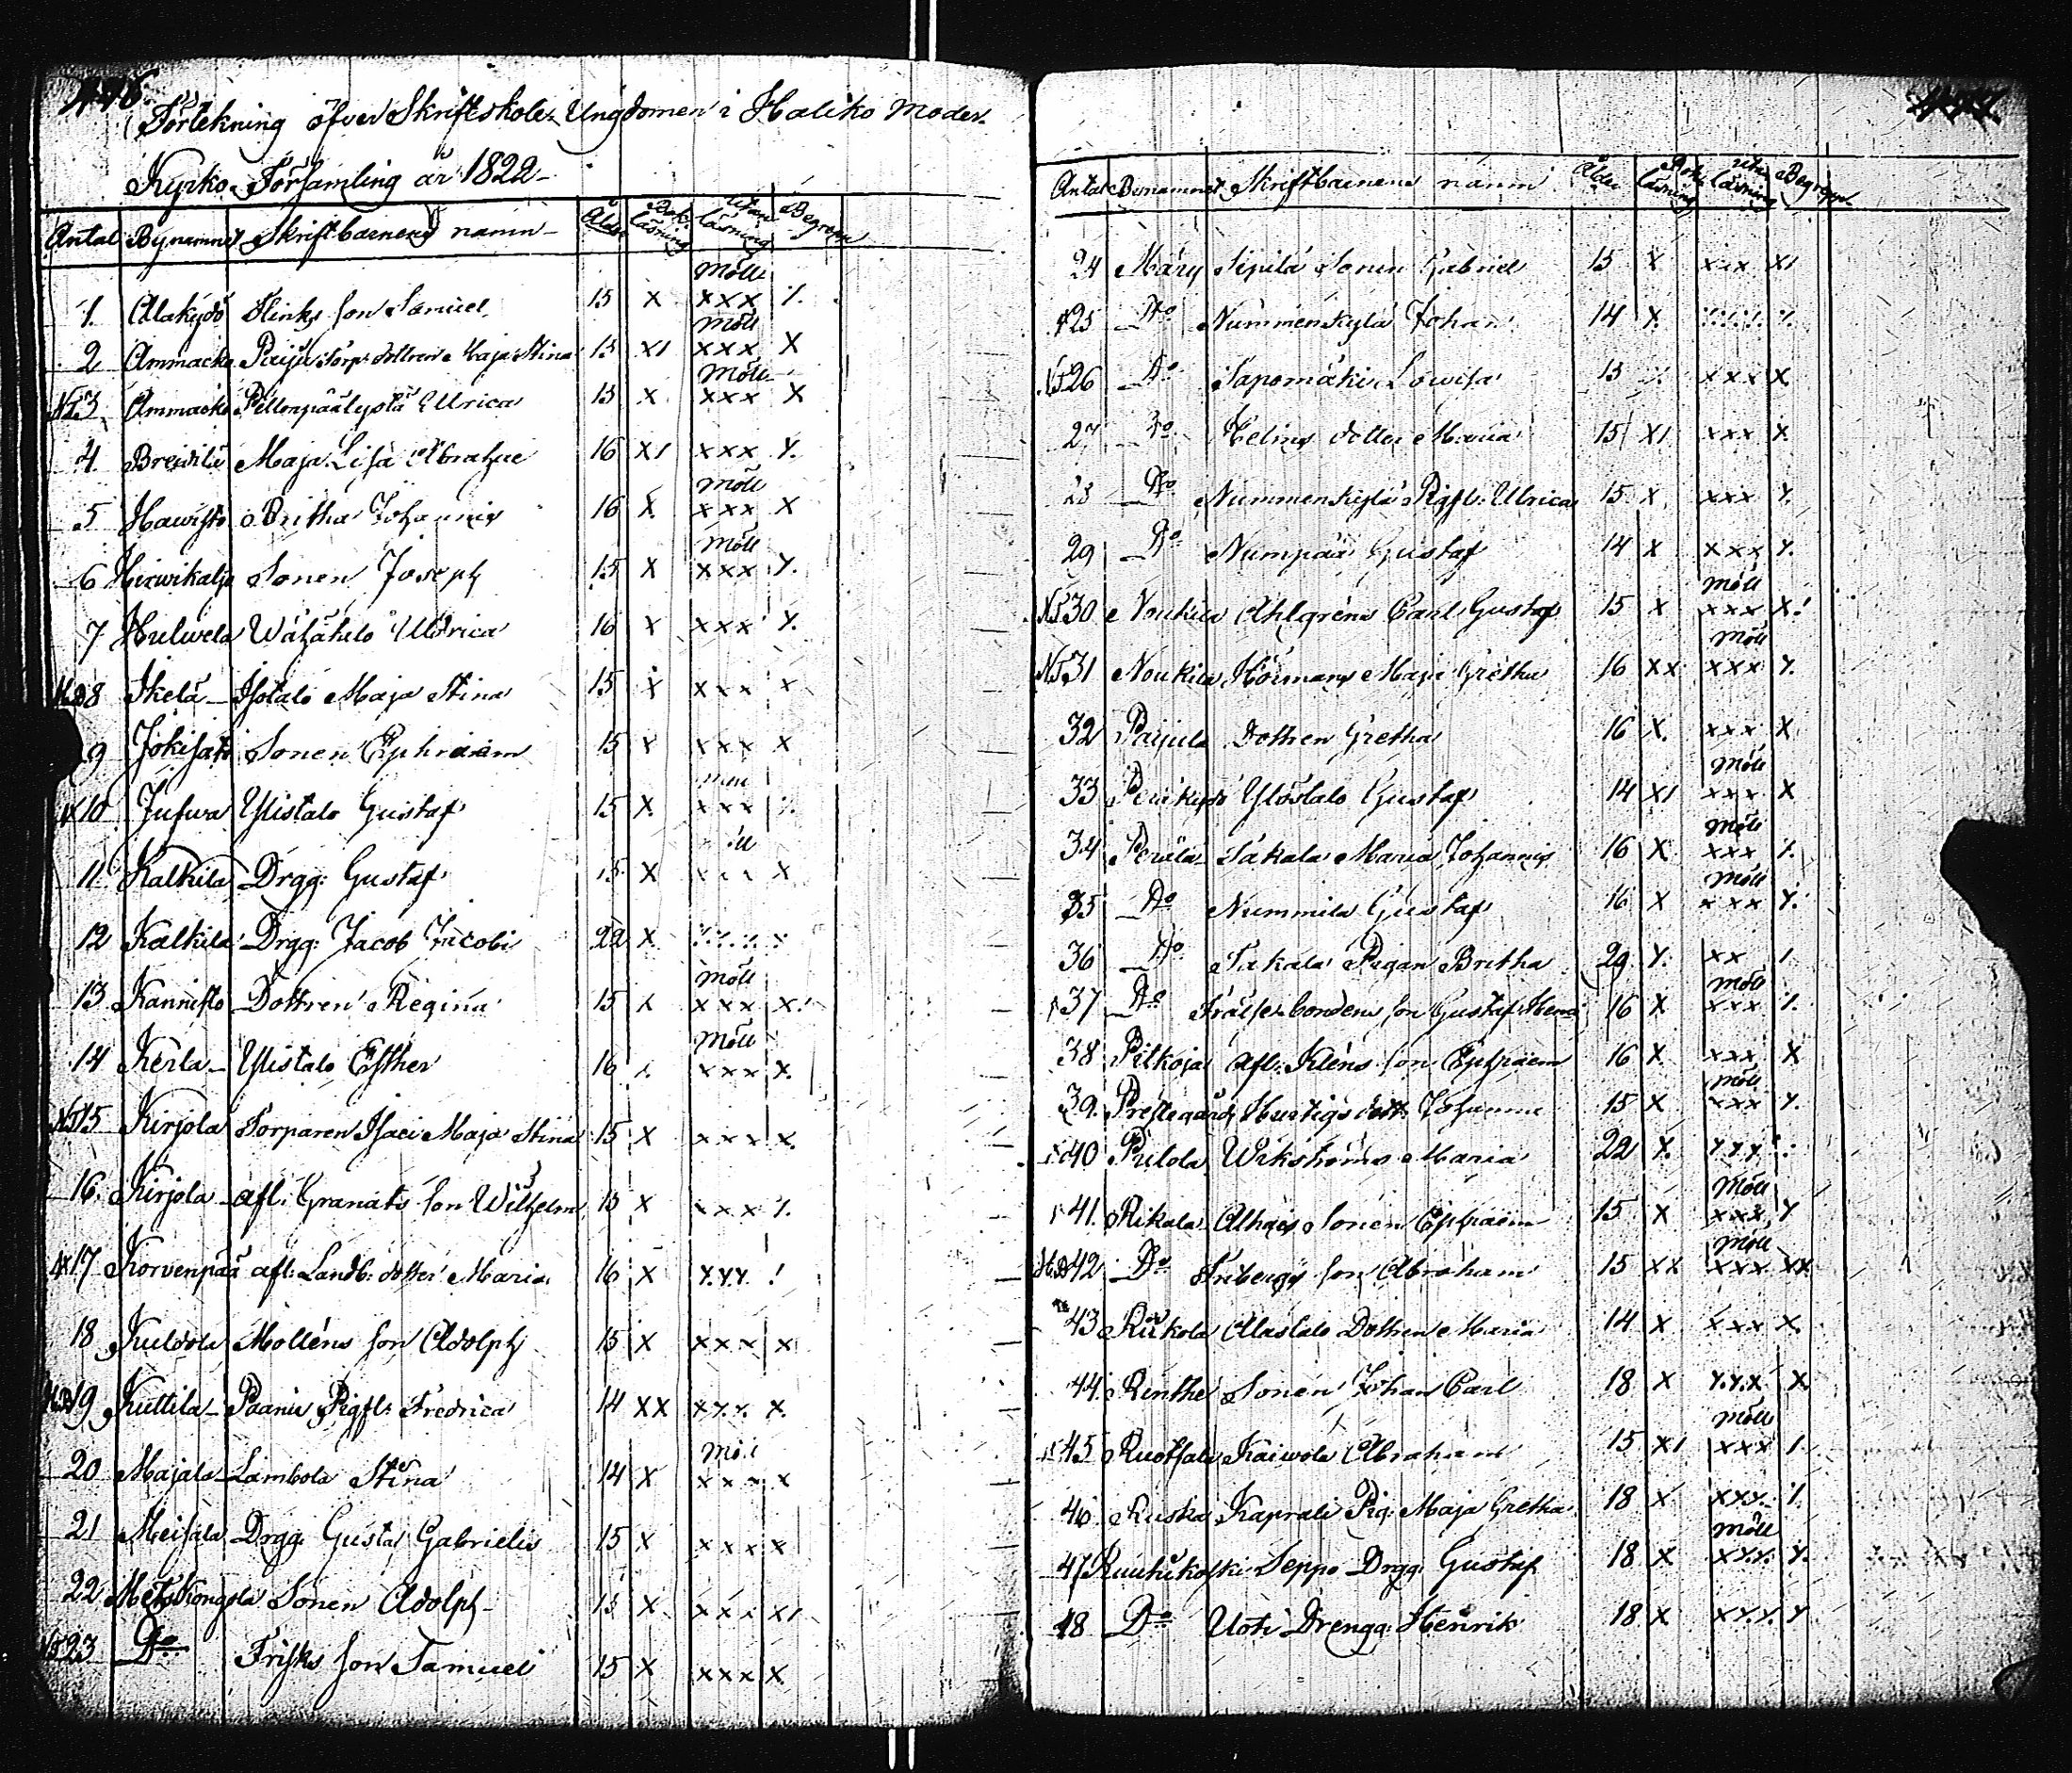 446.
Förtekning öfver Skriftskole Ungdomen i Haliko Moder-
Kyrko Församling år 1822-
Antal Bynamnet Skriftbarnens namn Ålder Bok läsning Utan läsning Begrepp
1. Alakydö Flinks son Samuel 15 x Möll xxx
2 Ammacko Paiju Torp: dottren Maja Stina 15 x1 Möll xxx x
NB 3 Ammacko Pellonpäälystä Ullrica 15 x Möll xxx x
4 Breidilä Maja Lisa Abrahae 16 x1 xxx x.
5 Hawisto Britha Johannis 16 x. Möll xxx x
6 Hirwikaljo Sonen Joseph 15 x Möll xxx x.
7 Hulwela Wähätalo Ullrica 16 x xxx x.
8 Ikelä Isotalo Maja Stina 15 x xxx x
9 Jokisato Sonen Ephraim 15 x xxx x
10 Jufwa Ylistalo Gustaf 15 x. xxx
11 Kalkila Drgg: Gustaf 15 x xxx x
12 Kalkila Drgg: Jacob Jacobi 22 x
13 Kannisto Dottren Regina 15 x Möll xxx x.
14 Kerla Ylistalo Esther 16 Möll xxx x.
NB 15 Kirjola Torparen Isaci Maja Stina 15 x xxx x.
16. Kirjola afl: Granats son Wilhelm 15 x xxx
17 Korvenpää afl: Landb: dotter Maria 16 x xxx
18 Kuldola Molléns son Adolph 15 x xxx x
19 Kuttila Paaniu Pigfl: Fredrica 14 xx xxx x.
20 Majala Lambola Stina 14 x Möll xxx x
21 Meisala Drgg: Gustaf Gabrielis 15 x xxx x
22 Metskongola Sonen Adolph 15 x xxx x1
NB 23 Do Frisks son Samuel 15 x xxx x
Antal Bynamnet Skriftbarnens namn Ålder Bok läsning Utan läsning Begreppet
24 Märy Sipilä Sonen Gabriel 15 x xxx x1
25 Do Nummenkylä Johan 14 x.
NB 26 Do Sapomäki Lowisa 15 xxx x
27 Do Helins dotter Maria 15 x1 xxx x
28 Do Nummenkylä Pigfl: Ulrica 15 x xxx x.
29 Do Numpää Gustaf 14 x xxx x.
NB 30 Noukila Ahlgréns Carl Gustaf 15 x Möll xxx x.
NB 31 Noukila Hörmans Maja Gretha 16 xx Möll xxx x.
32 Paijula Dottren Gretha 16 x. xxx x
33 Ylöstalo Gustaf 14 x1 Möll xxx x
34 Perälä Takala Maria Johannis 16 x Möll xxx
35 Do Nummila Gustaf 16 x Möll xxx x.
36 Do Takala Pigan Britha 29 x. xx 1
37 Do Frälse bondens son Gustaf 16 x Möll xxx
38 Pitkoja afl: Kléns son Ephraem 16 x xxx x
39. Prestegård Hurtigs dott: Johanna 15 x Möll xxx x.
40 Pulola Wikströms Maria 22 x. xxx
41. Rikala Althais Sonen Ephraem 15 x Möll xxx x
42 Do son Abraham 15 xx Möll xxx xx
43 Rükola Alastalo Dottren Maria 14 x xxx x
44. Renthe Sonen Johan Carl 18 x xxx x
45 Ruotsala Kaiwola Abraham 15 x1 Möll xxx 1.
46 Ruska Kaprali Pig: Maja Gretha 18 x xxx 1.
47 Ruuhikoski Seppo Drgg: Gustaf 18 x Möll xxx x.
48 Do Uoti Drengg: Henrik 18 x xxx x